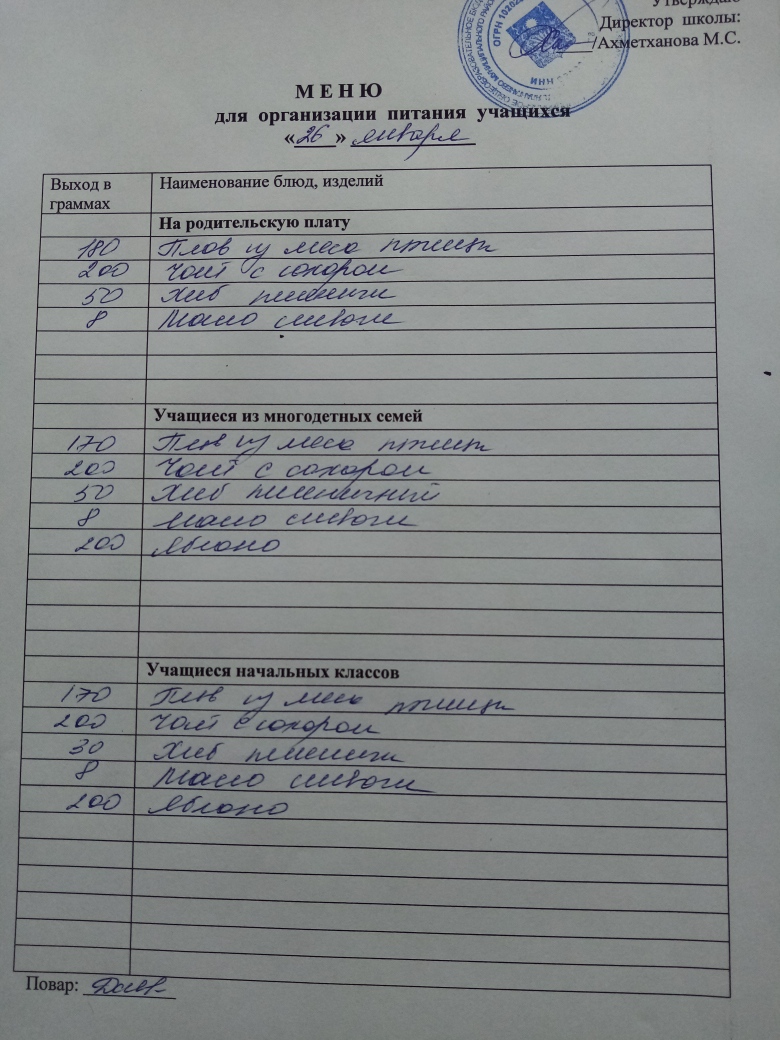 Утверждаю
Директор школы:
/Ахметханова М.С.
ОГРН 10202
ИНН
М Е Н Ю
для организации питания учащихся
«26» января
Выход в граммах Наименование блюд, изделий
На родительскую плату
180 Плов из мяса птицы
200 Чай с сахаром
50 Хлеб пшенич
8 Масло сливоч
Учащиеся из многодетных семей
170 Плов из мяса птицы
200 Чай с сахаром
50 Хлеб пшеничный
8 Масло сливоч
200 Яблоко
Учащиеся начальных классов
170 Плов из мяса птицы
200 Чай с сахаром
30 Хлеб пшенич
8 Масло сливоч
200 Яблоко
Повар: